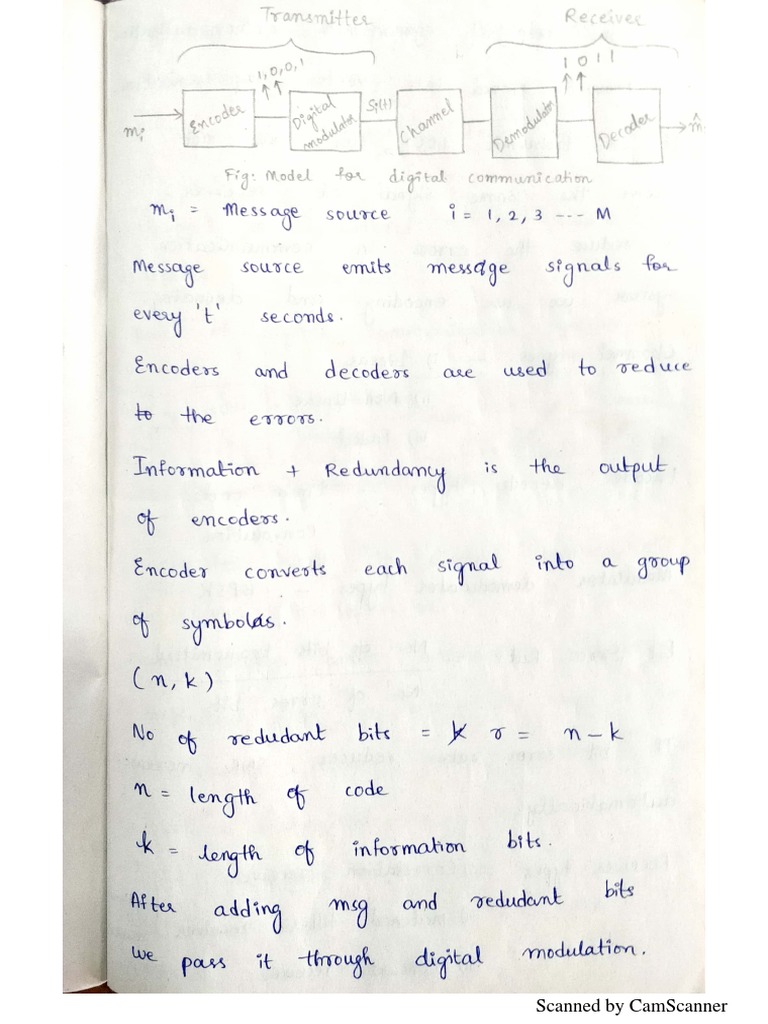 Transmitter Receiver
1,0,0,1 1 0 1 1
mi Encoder Digital modulator Si(t) Channel Demodulator Decoder m̂
Fig: Model for digital communication
mi = Message source i = 1, 2, 3 --- M
Message source emits message signals for
every 't' seconds.
Encoders and decoders are used to reduce
to the errors.
Information + Redundancy is the output
of encoders.
Encoder converts each signal into a group
of symbols.
(n, k)
No of redudant bits = k r = n - k
n = length of code
k = length of information bits.
After adding msg and redudant bits
we pass it through digital modulation.
Scanned by CamScanner